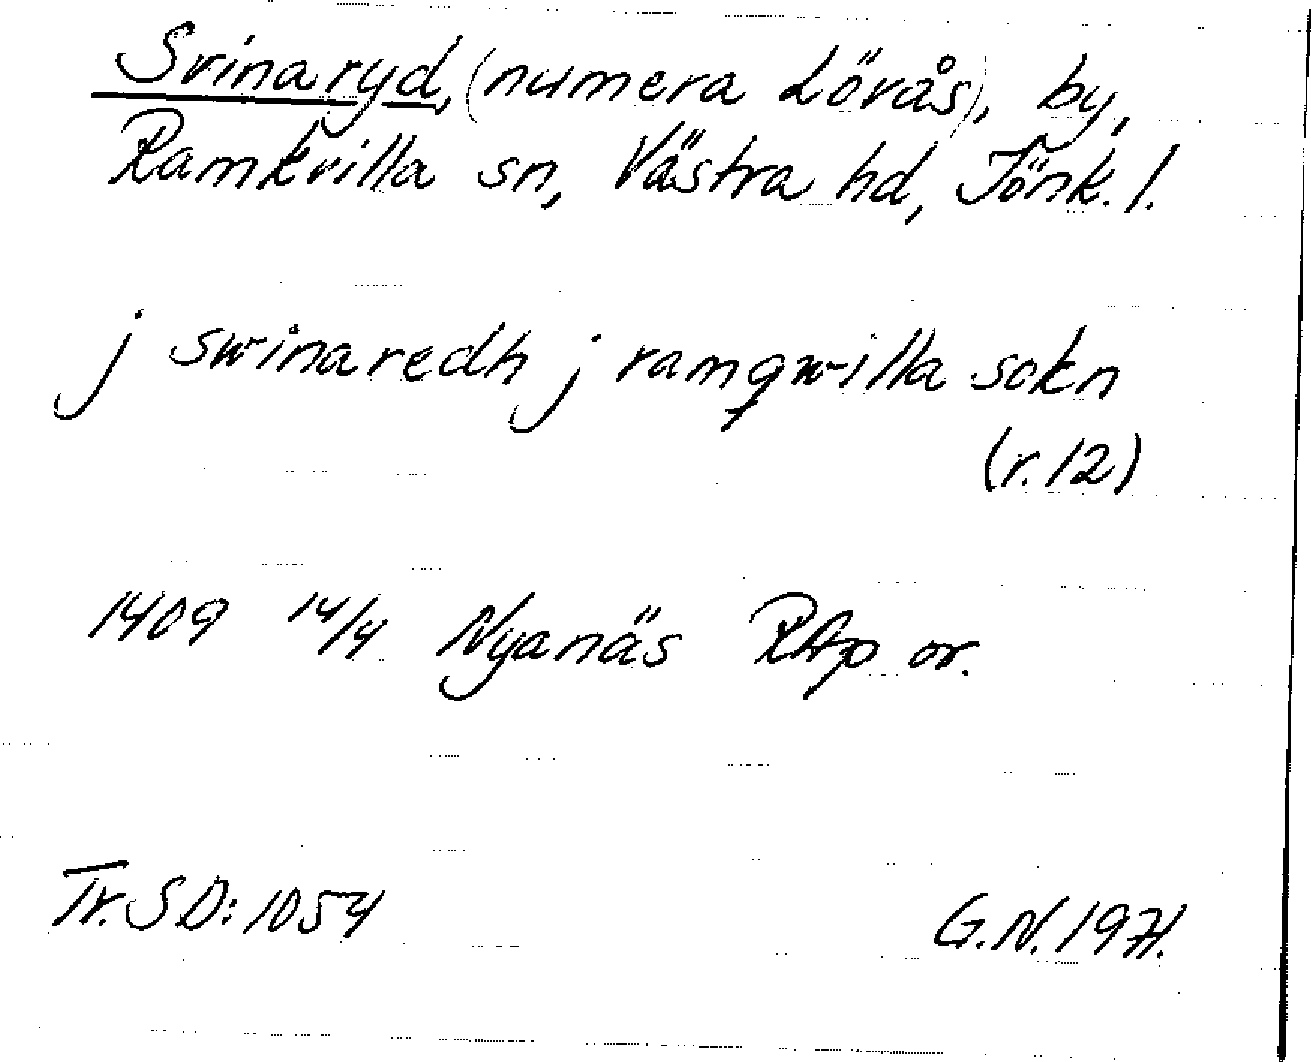 Svinaryd, (numera Lövås), by,
Ramkvilla sn, Västra hd, Jönk. l.
j swinaredh j ramqwilla sokn
(r. 12)
1409 14/4 Nyanäs RAp or.
Tr. SD: 1054
G.N. 1971.